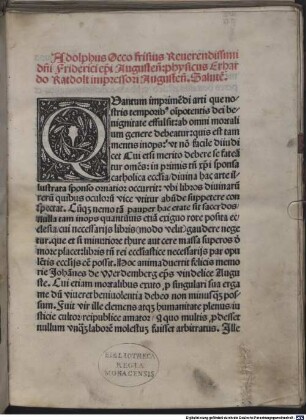 Adolphus Occo frisius Reuerendissimi
dñi Friderici epĩ Augusteñ: physicus Erhar
do Ratdolt impressori Augusteñ. Salutẽ.
QUantum imprimẽdi arti que no
stris temporibꝰ oĩpotentis dei be
nignitate effulsit: ab omni mortaliũ
genere debeatur: quis est tam
mentis inops? vt nõ facile diiudi
cet Cui etsi merito debere se fatea
tur omẽs: in primis tñ xp̃i sponsa
catholica ecclesia/ diuina hac arte il-
lustrata sponso ornatior occurrit: vbi libros diuinarũ
rerũ quibus oculorũ vice vtitur abũde suppetere con
spicerat. Cuqꝫ nemo tã pauper hac etate sit sacerdos
nulla tam inops quantũuis etiã exiguo rote posita ec
clesia: cui necessarijs libris (modo velit) gaudere nege
tur. que et si minutiore thure aut cere massa superos
more placet: libris tñ rei ecclesiastice necessarijs par opu
lẽtis ecclijs cẽ possit. Hoc anima duerit felicis memo
rie Johãnes de Werdemberg epũs vindelice Augu-
ste. Cui etiam mortalibus exuto / ꝓ singulari sua erga
me dũ viueret beniuolentia debeo non minusqꝫ pos-
sum. Fuit vir ille clemens atqꝫ humanitate plenus iu
sticie cultor reipublice amator: a quo multis ꝓdesset
nullum vnqꝫ laborẽ molestuꝫ fuisset arbitratus. Ille
BIBLIOTHECA
REGIA
MONACENSIS